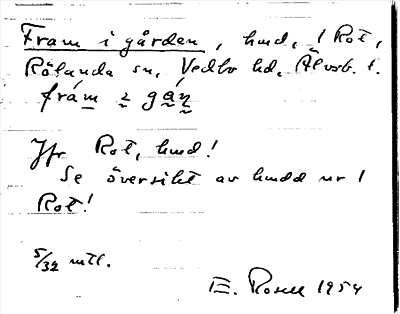 Fram i gården, hmd, i Rot,
Rölanda sn, Vedbo hd, Älvsb. l.
fràm i gáɳ
Jfr Rot, hmd!
Se översikt av hmdd ur i
Rot!
5/32 mtl.
E. Rosell 1954